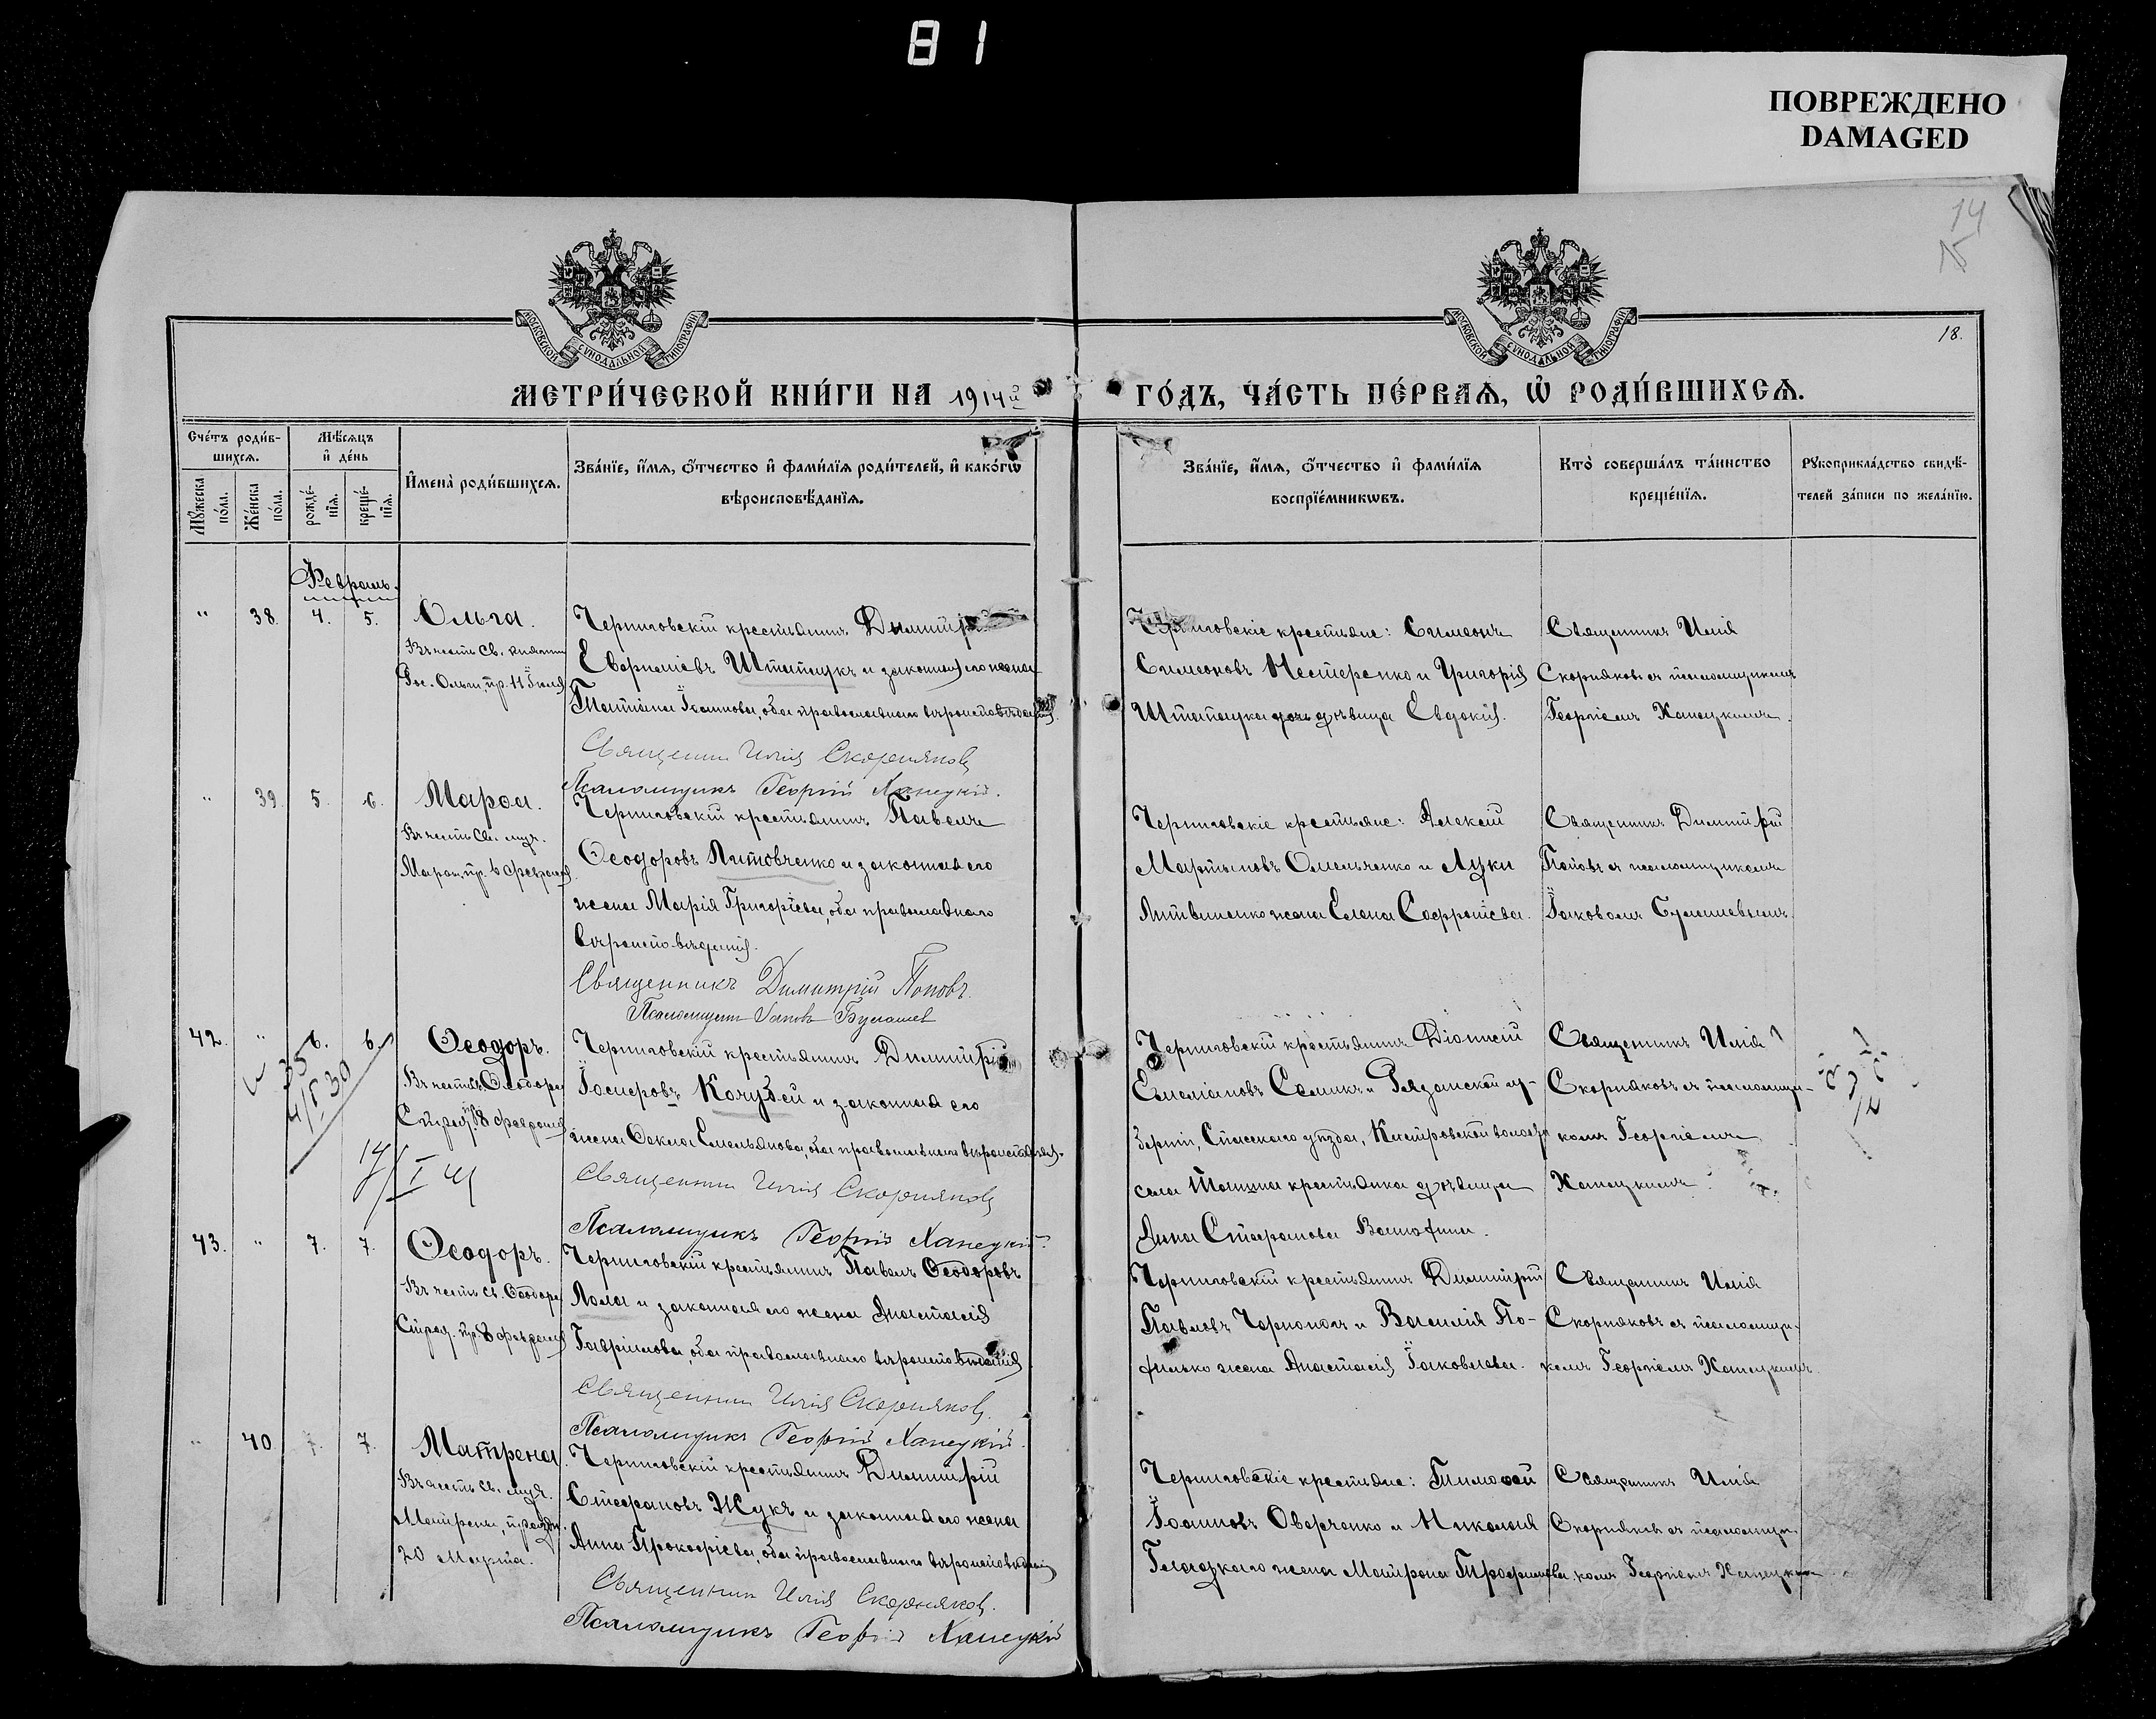 81
ПОВРЕЖДЕНО
DAMAGED
14
15
18.
МОСКОВСКОЙ СУНОДАЛЬНОЙ ТИПОГРАФІИ
МОСКОВСКОЙ СУНОДАЛЬНОЙ ТИПОГРАФІИ
МЕТРИ́ЧЕСКОЙ КНИ́ГИ НА 1914й
ГО́ДЪ, ЧА́СТЬ ПЕ́РВАѦ, Ѡ҆ РОДИ́ВШИХСѦ.
Сче́тъ роди́в-
шихсѧ.
Мѣ́сѧцъ
и҆ де́нь
Мꙋ́жеска
по́ла.
Же́нска
по́ла.
рожде́-
нїѧ.
креще́-
нїѧ.
И҆мена̀ роди́вшихсѧ.
Зва́нїе, и҆́мѧ, ѻ҆́тчество и҆ фами́лїѧ роди́телей, и҆ како́гѡ
вѣроисповѣ́данїѧ.
Зва́нїе, и҆́мѧ, ѻ҆́тчество и҆ фами́лїѧ
воспрїе́мникѡвъ.
Кто̀ соверша́лъ та́инство
креще́нїѧ.
Рꙋкоприкла́дство свидѣ́-
телей за́писи по жела́нїю.
Февраль.
" 38. 4. 5. Ольга.
Въ честь св. княгини
Рос. Ольги, пр. 11 Іюля
Черниговскій крестьянинъ Димитрій
Штатцукъ и законная его жена
Татіана Іоаннова, оба православнаго вѣроисповѣданія
Священник Илія Скорняков
Псаломщикъ Георгій Ханецкій.
Черниговскіе крестьяне: Симеонъ
Симеоновъ Нестеренко и Григорія
дочь дѣвица Евдокія.
Священникъ Илія
Скорняковъ съ псаломщикомъ
Георгіемъ Ханецкимъ.
" 39. 5. 6. Марѳа.
Въ честь св. муч.
Марѳы, пр. 6 февраля.
Черниговскій крестьянинъ Павелъ
Ѳеодоровъ Литовченко и законная его
жена Марія Григоріева, оба православнаго
вѣроисповѣданія.
Священникъ Димитрій Поповъ.
Псаломщик Іаков Булашев
Черниговскіе крестьяне: Алексій
Мартыновъ Омельченко и Луки
Литвиненко жена Елена Софроніева.
Священникъ Димитрій
Поповъ съ псаломщикомъ
Іаковомъ Булашевымъ.
42. " 6. 6. Ѳеодоръ.
Въ честь Ѳеодора
Страт. пр. 8 февраля
Черниговскій крестьянинъ Димитрій
Іосифовъ Кочубей и законная его
жена Ѳекла Емельянова, оба православнаго
Священник Илія Скорняков
Псаломщикъ Георгій Ханецкій.
Черниговскій крестьянинъ Діонисій
Емеліановъ и Рязанской гу-
берніи, Спасскаго уѣзда, волости
села крестьянка дѣвица
Анна Стефанова
Священникъ Илія
Скорняковъ съ псаломщи-
комъ Георгіемъ
Ханецкимъ.
43. " 7. 7. Ѳеодоръ.
Въ честь св. Ѳеодора
Страт. пр. 8 февраля
Черниговскій крестьянинъ Павелъ Ѳеодоровъ
Лола и законная его жена Анастасія
Гавріилова, оба православнаго вѣроисповѣданія
Священник Илія Скорняков.
Псаломщикъ Георгій Ханецкій.
Черниговскій крестьянинъ Димитрій
Павловъ и Василія По-
жена Анастасія Іаковлева.
Священникъ Илія
Скорняковъ съ псаломщи-
комъ Георгіемъ Ханецкимъ.
" 40 7. 7. Матрена
Въ честь св. муч.
Матрены, праздн.
20 Марта.
Черниговскій крестьянинъ Димитрій
Стефановъ Жукъ и законная его жена
Анна Прокофіева, оба православнаго вѣроисповѣданія
Священник Илія Скорняков.
Псаломщикъ Георгій Ханецкій
Черниговскіе крестьяне: Тимоѳей
Іоанновъ Оверченко и Николая
жена Матрона Трофимова
Священникъ Илія
Скорняковъ съ псаломщи-
комъ Георгіемъ Ханецкимъ